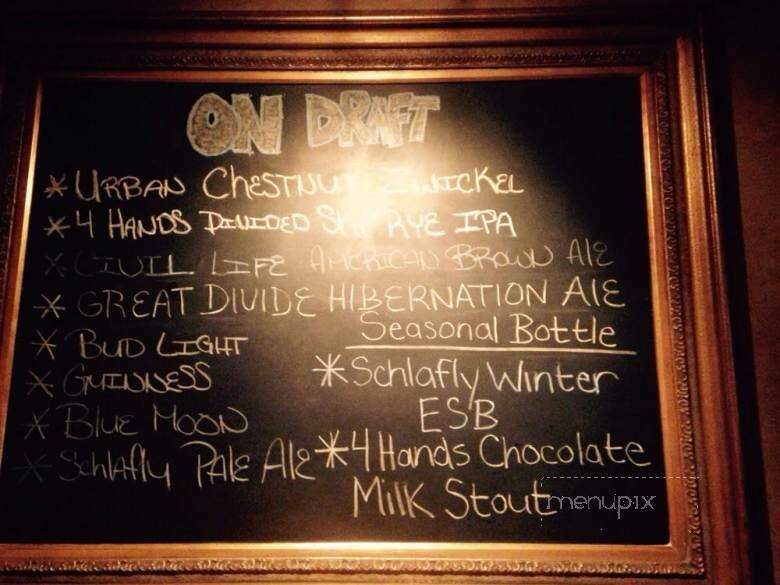 ON DRAFT
* URBAN CHESTNUT ZWICKEL
* 4 HANDS DIVIDED SKY RYE IPA
* CIVIL LIFE AMERICAN BROWN Ale
* GREAT DIVIDE HIBERNATION Ale
* BUD LIGHT
* GUINNESS
* BLUE MOON
* Schlafly PALE Ale
Seasonal Bottle
* Schlafly Winter
ESB
* 4 Hands Chocolate
Milk Stout
menupix